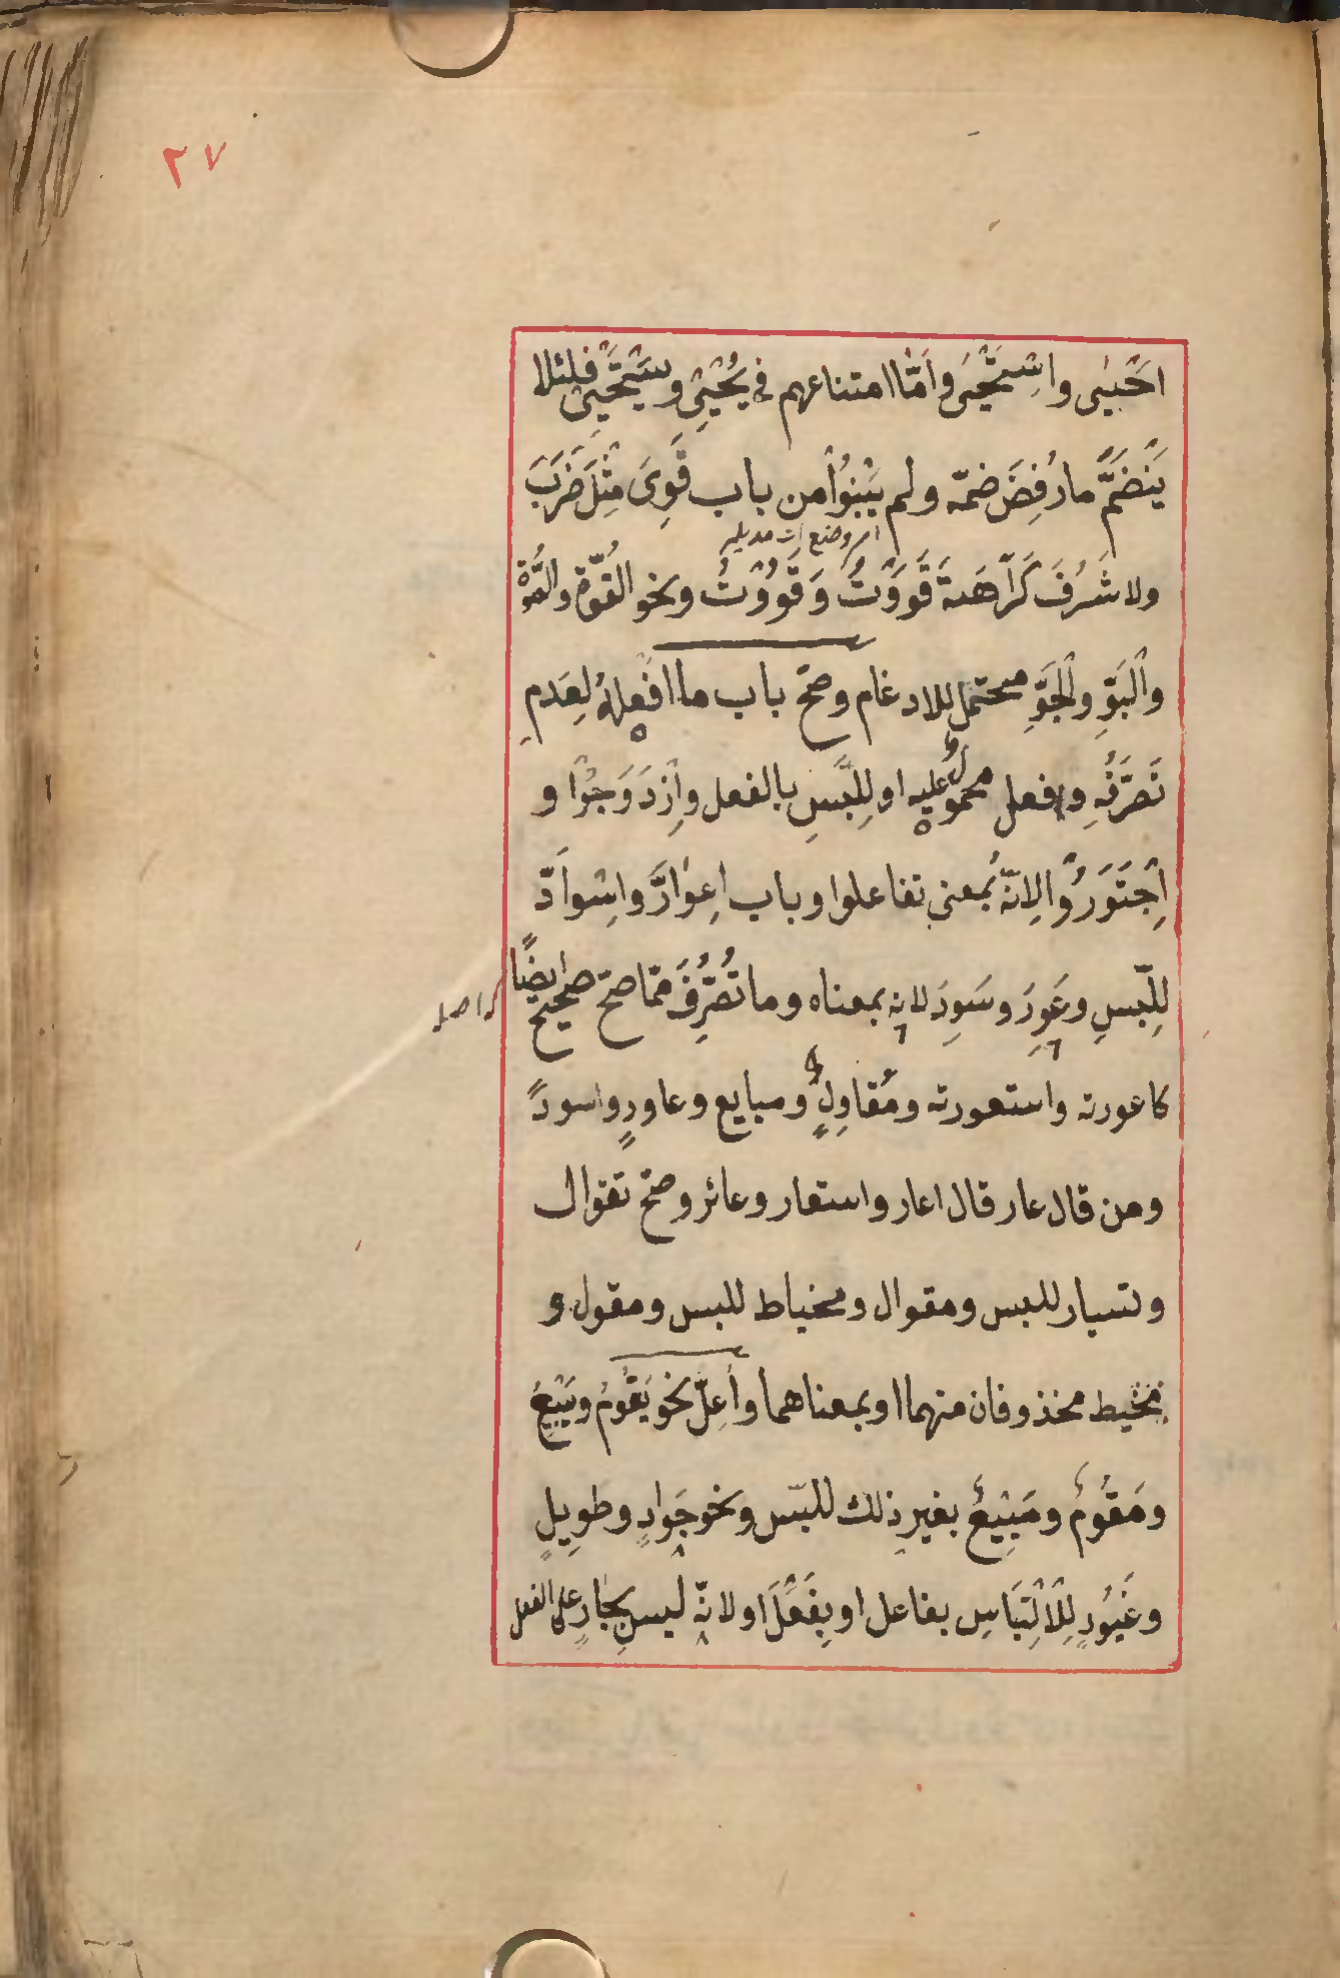 ٢٧
اَحْيَىٰ واِسْتَحْيَىٰ واَمَّا امتناعهم فى يُحْيِىُ ويَسْتَحْيِىُ فلئلا
يَنْضَمَّ مارُفِضَ ضمّه ولم يَبْنُوْا من باب قَوِىَ مِثْلَ ضَرَبَ
ولا شَرُفَ كَرَاهَةَ قَوَوْتُ وَقَوُوْتُ ونحو القُوّة والصُّوّة
والْبَوِّ والْجَوِّ محتمل للادغام وصحّ باب ما افْعِلهُ لِعَدمِ
تَصَرُّفِهِ وافعل محمولٌ عليه او لِلَّبسِ بالفعل واِزْدَوَجُوْا و
اِجْتَوَرُوْا لِانّهُ بمعنى تفاعلوا وباب اِعوَارَّ واِسْوَادَّ
لِلّبسِ وعَوِرَ وسَوِدَ لانه بمعناه وما تُصُرِّفَ ممّا صحّ صحيح ايضًا
كاعورته واستعورته ومُقاوِلٍ ومبايع وعاورٍ واسودَ
ومن قال عار قال اعار واستعار وعائر وصحّ تقوال
وتسيار للبس ومقوال ومخياط للبس ومقول و
مخيط محذوفان منهما او بمعناهما واُعِلّ نحو يَقُوْمُ ويَبِيْعُ
ومَقُوْمٌ ومَبِيْعٌ بغير ذلك للبّس ونحو جَوادٍ وطَوِيلٍ
وغَيُورٍ لِلْاَلْتِبَاسِ بفاعل او بِفَعَلَ او لانّه ليس بجارٍ على الفعل